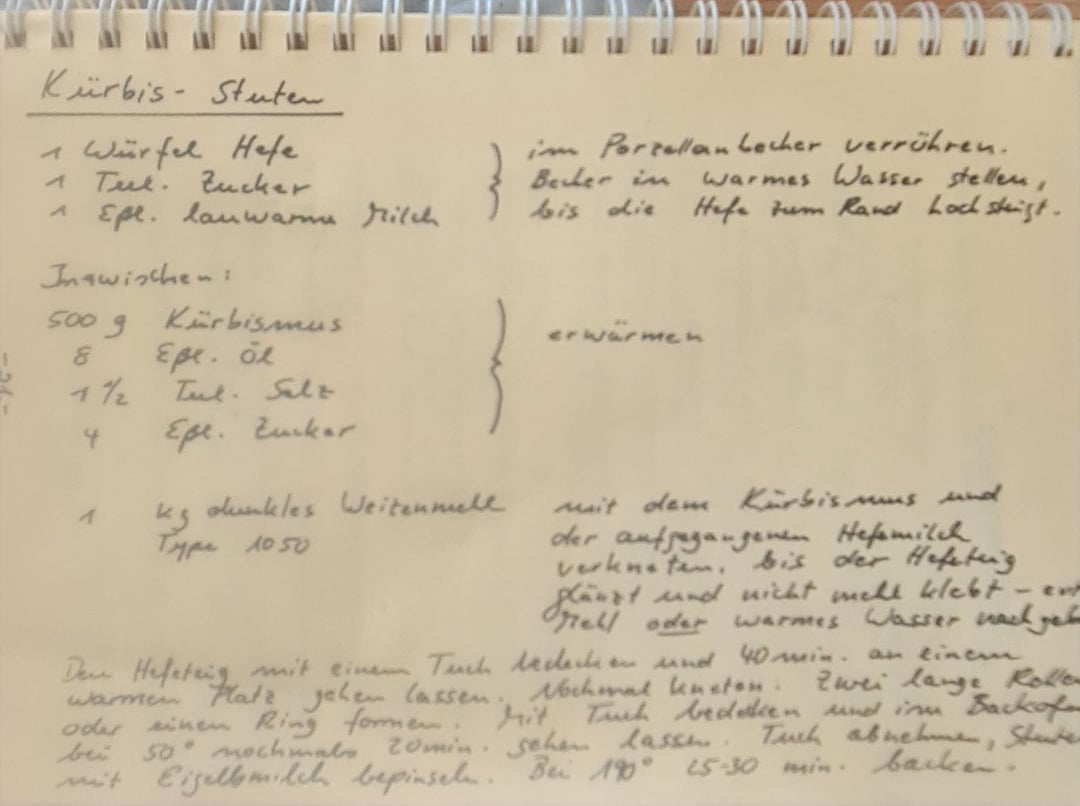 Kürbis - Stuten
1 Würfel Hefe
1 Teel. Zucker
1 Eßl. lauwarme Milch
im Porzellanbecher verrühren.
Becher in warmes Wasser stellen,
bis die Hefe zum Rand hochsteigt.
Inzwischen:
500 g Kürbismus
8 Eßl. Öl
1 1/2 Teel. Salz
4 Eßl. Zucker
erwärmen
1 kg dunkles Weizenmehl
Type 1050
mit dem Kürbismus und
der aufgegangenen Hefemilch
verkneten, bis der Hefeteig
glänzt und nicht mehr klebt - evt
Mehl oder warmes Wasser nachgeb
Den Hefeteig mit einem Tuch bedecken und 40 min. an einem
warmen Platz gehen lassen. Nochmal kneten. Zwei lange Rollen
oder einen Ring formen. Mit Tuch bedecken und im Backofen
bei 50° nochmals 20 min. gehen lassen. Tuch abnehmen, Stuten
mit Eigelbmilch bepinseln. Bei 190° 25-30 min. backen.